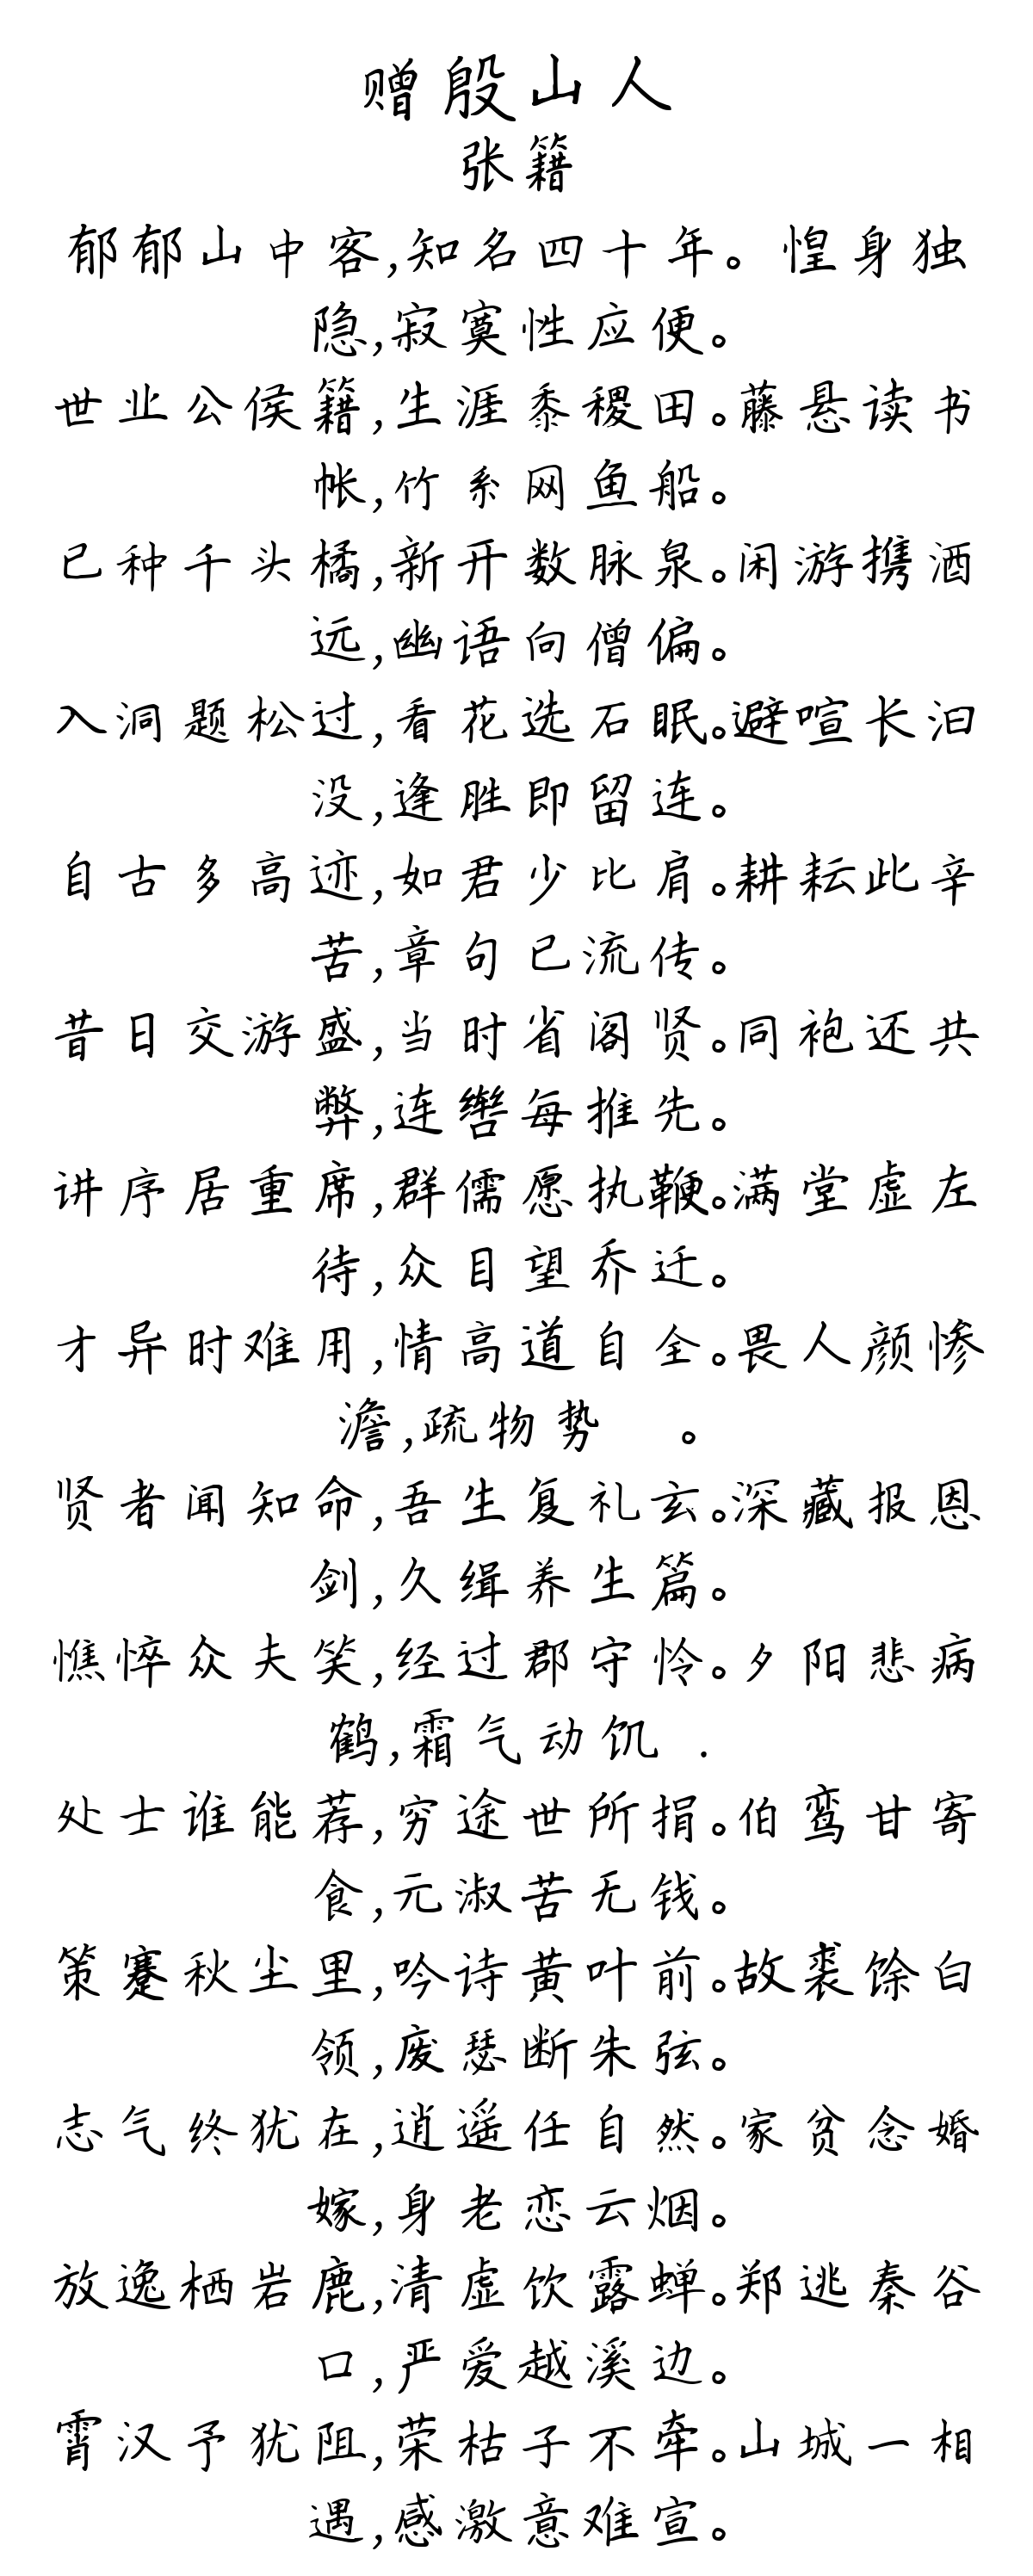 赠殷山人
张籍
郁郁山中客,知名四十年。惶身独
隐,寂寞性应便。
世业公侯籍,生涯黍稷田。藤悬读书
帐,竹系网鱼船。
已种千头橘,新开数脉泉。闲游携酒
远,幽语向僧偏。
入洞题松过,看花选石眠。避喧长汩
没,逢胜即留连。
自古多高迹,如君少比肩。耕耘此辛
苦,章句已流传。
昔日交游盛,当时省阁贤。同袍还共
弊,连辔每推先。
讲序居重席,群儒愿执鞭。满堂虚左
待,众目望乔迁。
才异时难用,情高道自全。畏人颜惨
澹,疏物势 。
贤者闻知命,吾生复礼玄。深藏报恩
剑,久缉养生篇。
憔悴众夫笑,经过郡守怜。夕阳悲病
鹤,霜气动饥 .
处士谁能荐,穷途世所捐。伯鸾甘寄
食,元淑苦无钱。
策蹇秋尘里,吟诗黄叶前。故裘馀白
领,废瑟断朱弦。
志气终犹在,逍遥任自然。家贫念婚
嫁,身老恋云烟。
放逸栖岩鹿,清虚饮露蝉。郑逃秦谷
口,严爱越溪边。
霄汉予犹阻,荣枯子不牵。山城一相
遇,感激意难宣。